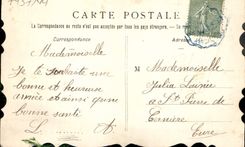 CARTE POSTALE
La Correspondance au recto n'est pas acceptée par tous les pays étrangers
Correspondance
Adresse
Mademoiselle
Je te souhaite une
bonne et heureuse
année et ainsi qu'une
bonne santé
L. A
M. Mademoiselle
Julia
à St Pierre de
Eure